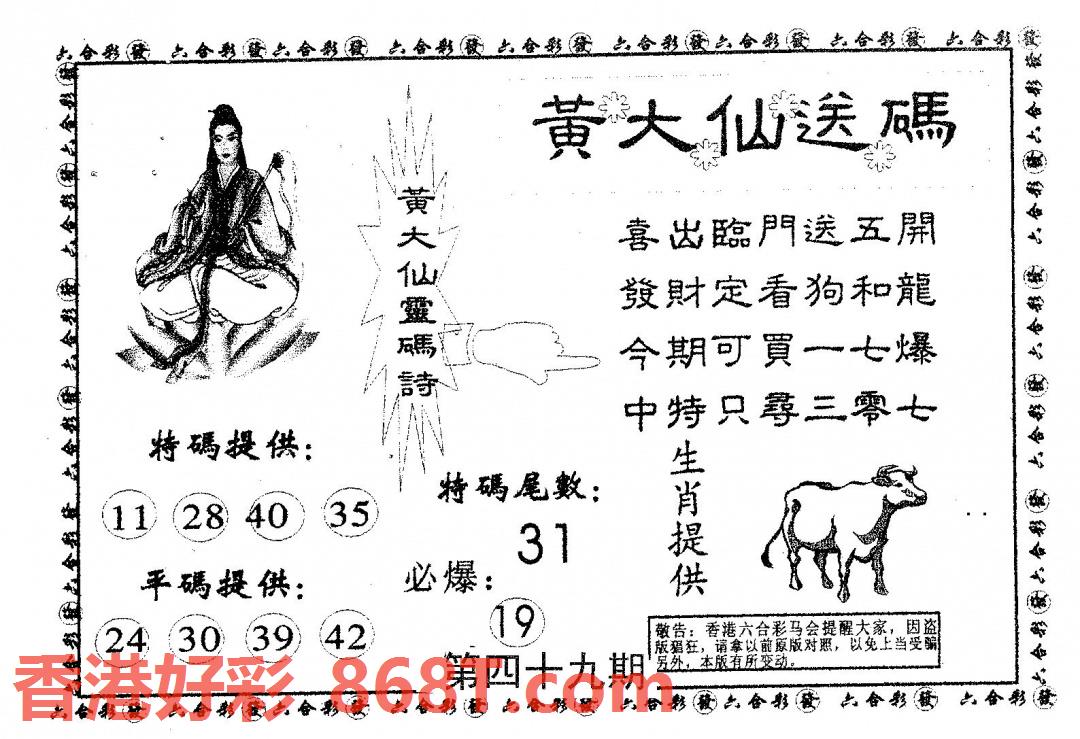 六合彩發 六合彩發 六合彩發 六合彩發 六合彩發 六合彩發 六合彩發 六合彩發 六合彩發
黃大仙送碼
黃大仙靈碼詩
喜出臨門送五開
發財定看狗和龍
今期可買一七爆
中特只尋三零七
特碼提供：
11 28 40 35
平碼提供：
24 30 39 42
特碼尾數：
31
必爆：
19
生肖提供
敬告：香港六合彩马会提醒大家，因盗
版猖狂，请拿以前原版对照，以免上当受騙
另外，本版有所变动。
第四十九期
香港好彩 868T.com
六合彩發 六合彩發 六合彩發 六合彩發 六合彩發 六合彩發 六合彩發 六合彩發 六合彩發